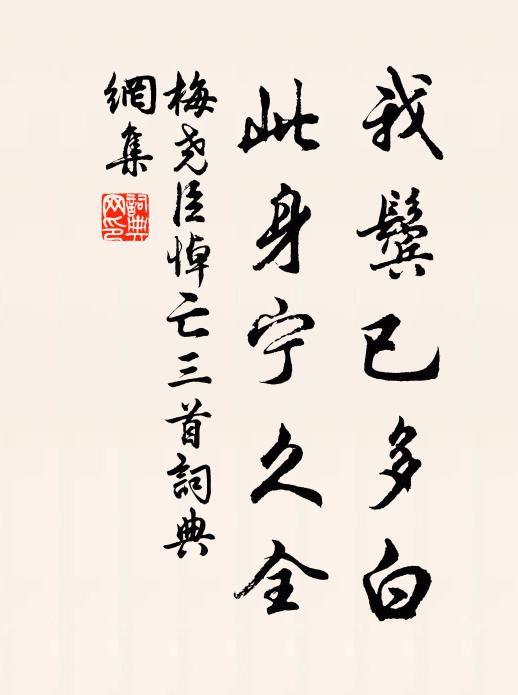 我鬓已多白
此身宁久全
梅尧臣悼亡三首詞典
網集
詞典
网印